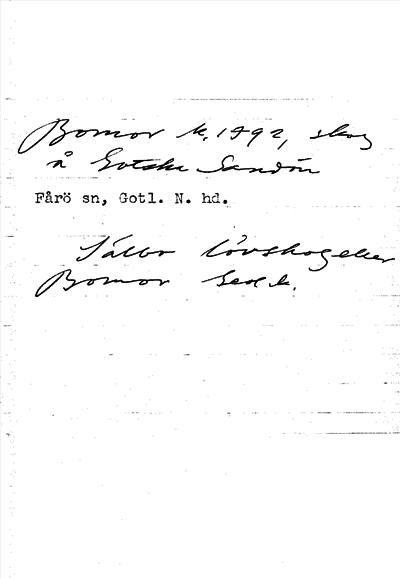 Bomor k. 1892, skog
å Gotska Sandön
Fårö sn, Gotl. N. hd.
lövskog eller
Bomor Geol. k.